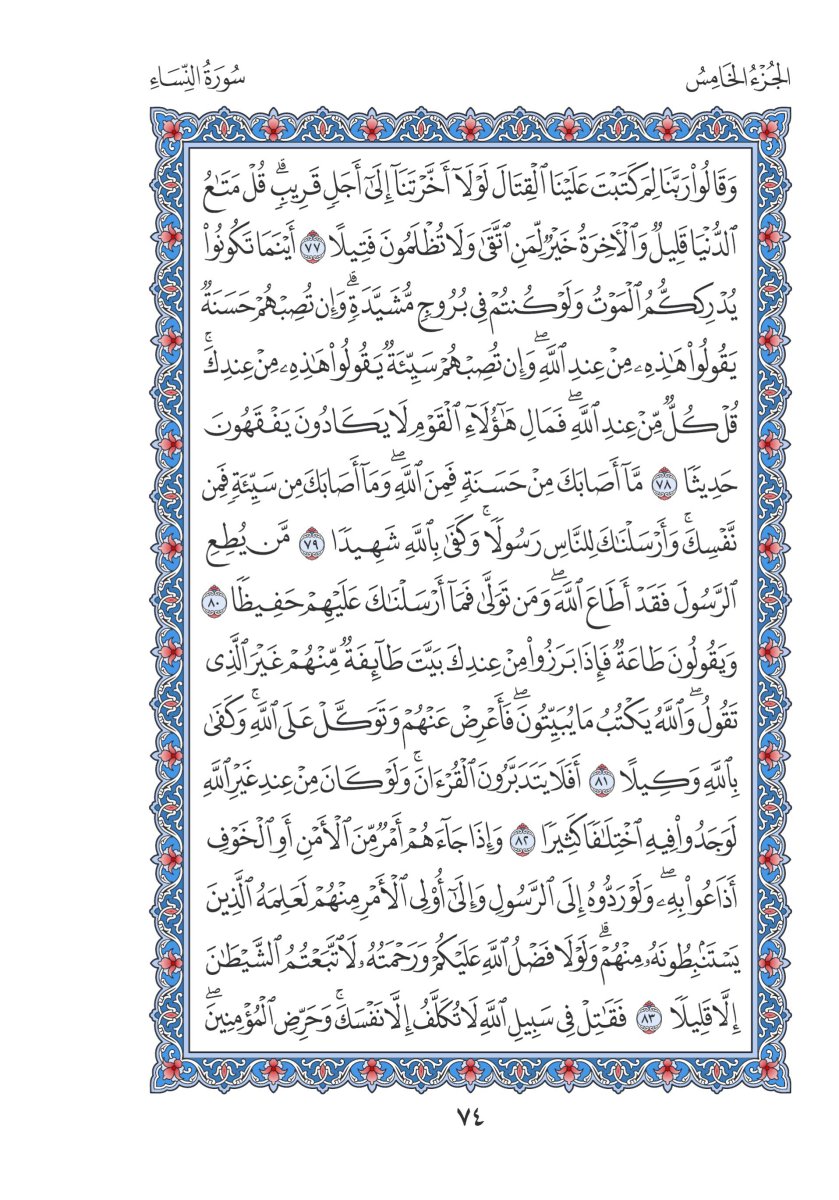 الجُزْءُ الخَامِسُ
سُورَةُ النِّسَاءِ
وَقَالُوا۟ رَبَّنَا لِمَ كَتَبْتَ عَلَيْنَا ٱلْقِتَالَ لَوْلَآ أَخَّرْتَنَآ إِلَىٰٓ أَجَلٍ قَرِيبٍ ۗ قُلْ مَتَـٰعُ
ٱلدُّنْيَا قَلِيلٌ وَٱلْـَٔاخِرَةُ خَيْرٌ لِّمَنِ ٱتَّقَىٰ وَلَا تُظْلَمُونَ فَتِيلًا ٧٧ أَيْنَمَا تَكُونُوا۟
يُدْرِككُّمُ ٱلْمَوْتُ وَلَوْ كُنتُمْ فِى بُرُوجٍ مُّشَيَّدَةٍ ۗ وَإِن تُصِبْهُمْ حَسَنَةٌ
يَقُولُوا۟ هَـٰذِهِۦ مِنْ عِندِ ٱللَّهِ ۖ وَإِن تُصِبْهُمْ سَيِّئَةٌ يَقُولُوا۟ هَـٰذِهِۦ مِنْ عِندِكَ ۚ
قُلْ كُلٌّ مِّنْ عِندِ ٱللَّهِ ۖ فَمَالِ هَـٰٓؤُلَآءِ ٱلْقَوْمِ لَا يَكَادُونَ يَفْقَهُونَ
حَدِيثًا ٧٨ مَّآ أَصَابَكَ مِنْ حَسَنَةٍ فَمِنَ ٱللَّهِ ۖ وَمَآ أَصَابَكَ مِن سَيِّئَةٍ فَمِن
نَّفْسِكَ ۚ وَأَرْسَلْنَـٰكَ لِلنَّاسِ رَسُولًا ۚ وَكَفَىٰ بِٱللَّهِ شَهِيدًا ٧٩ مَّن يُطِعِ
ٱلرَّسُولَ فَقَدْ أَطَاعَ ٱللَّهَ ۖ وَمَن تَوَلَّىٰ فَمَآ أَرْسَلْنَـٰكَ عَلَيْهِمْ حَفِيظًا ٨٠
وَيَقُولُونَ طَاعَةٌ فَإِذَا بَرَزُوا۟ مِنْ عِندِكَ بَيَّتَ طَآئِفَةٌ مِّنْهُمْ غَيْرَ ٱلَّذِى
تَقُولُ ۖ وَٱللَّهُ يَكْتُبُ مَا يُبَيِّتُونَ ۖ فَأَعْرِضْ عَنْهُمْ وَتَوَكَّلْ عَلَى ٱللَّهِ ۚ وَكَفَىٰ
بِٱللَّهِ وَكِيلًا ٨١ أَفَلَا يَتَدَبَّرُونَ ٱلْقُرْءَانَ ۚ وَلَوْ كَانَ مِنْ عِندِ غَيْرِ ٱللَّهِ
لَوَجَدُوا۟ فِيهِ ٱخْتِلَـٰفًا كَثِيرًا ٨٢ وَإِذَا جَآءَهُمْ أَمْرٌ مِّنَ ٱلْأَمْنِ أَوِ ٱلْخَوْفِ
أَذَاعُوا۟ بِهِۦ ۖ وَلَوْ رَدُّوهُ إِلَى ٱلرَّسُولِ وَإِلَىٰٓ أُو۟لِى ٱلْأَمْرِ مِنْهُمْ لَعَلِمَهُ ٱلَّذِينَ
يَسْتَنۢبِطُونَهُۥ مِنْهُمْ ۗ وَلَوْلَا فَضْلُ ٱللَّهِ عَلَيْكُمْ وَرَحْمَتُهُۥ لَٱتَّبَعْتُمُ ٱلشَّيْطَـٰنَ
إِلَّا قَلِيلًا ٨٣ فَقَـٰتِلْ فِى سَبِيلِ ٱللَّهِ لَا تُكَلَّفُ إِلَّا نَفْسَكَ ۚ وَحَرِّضِ ٱلْمُؤْمِنِينَ ۖ
٧٤